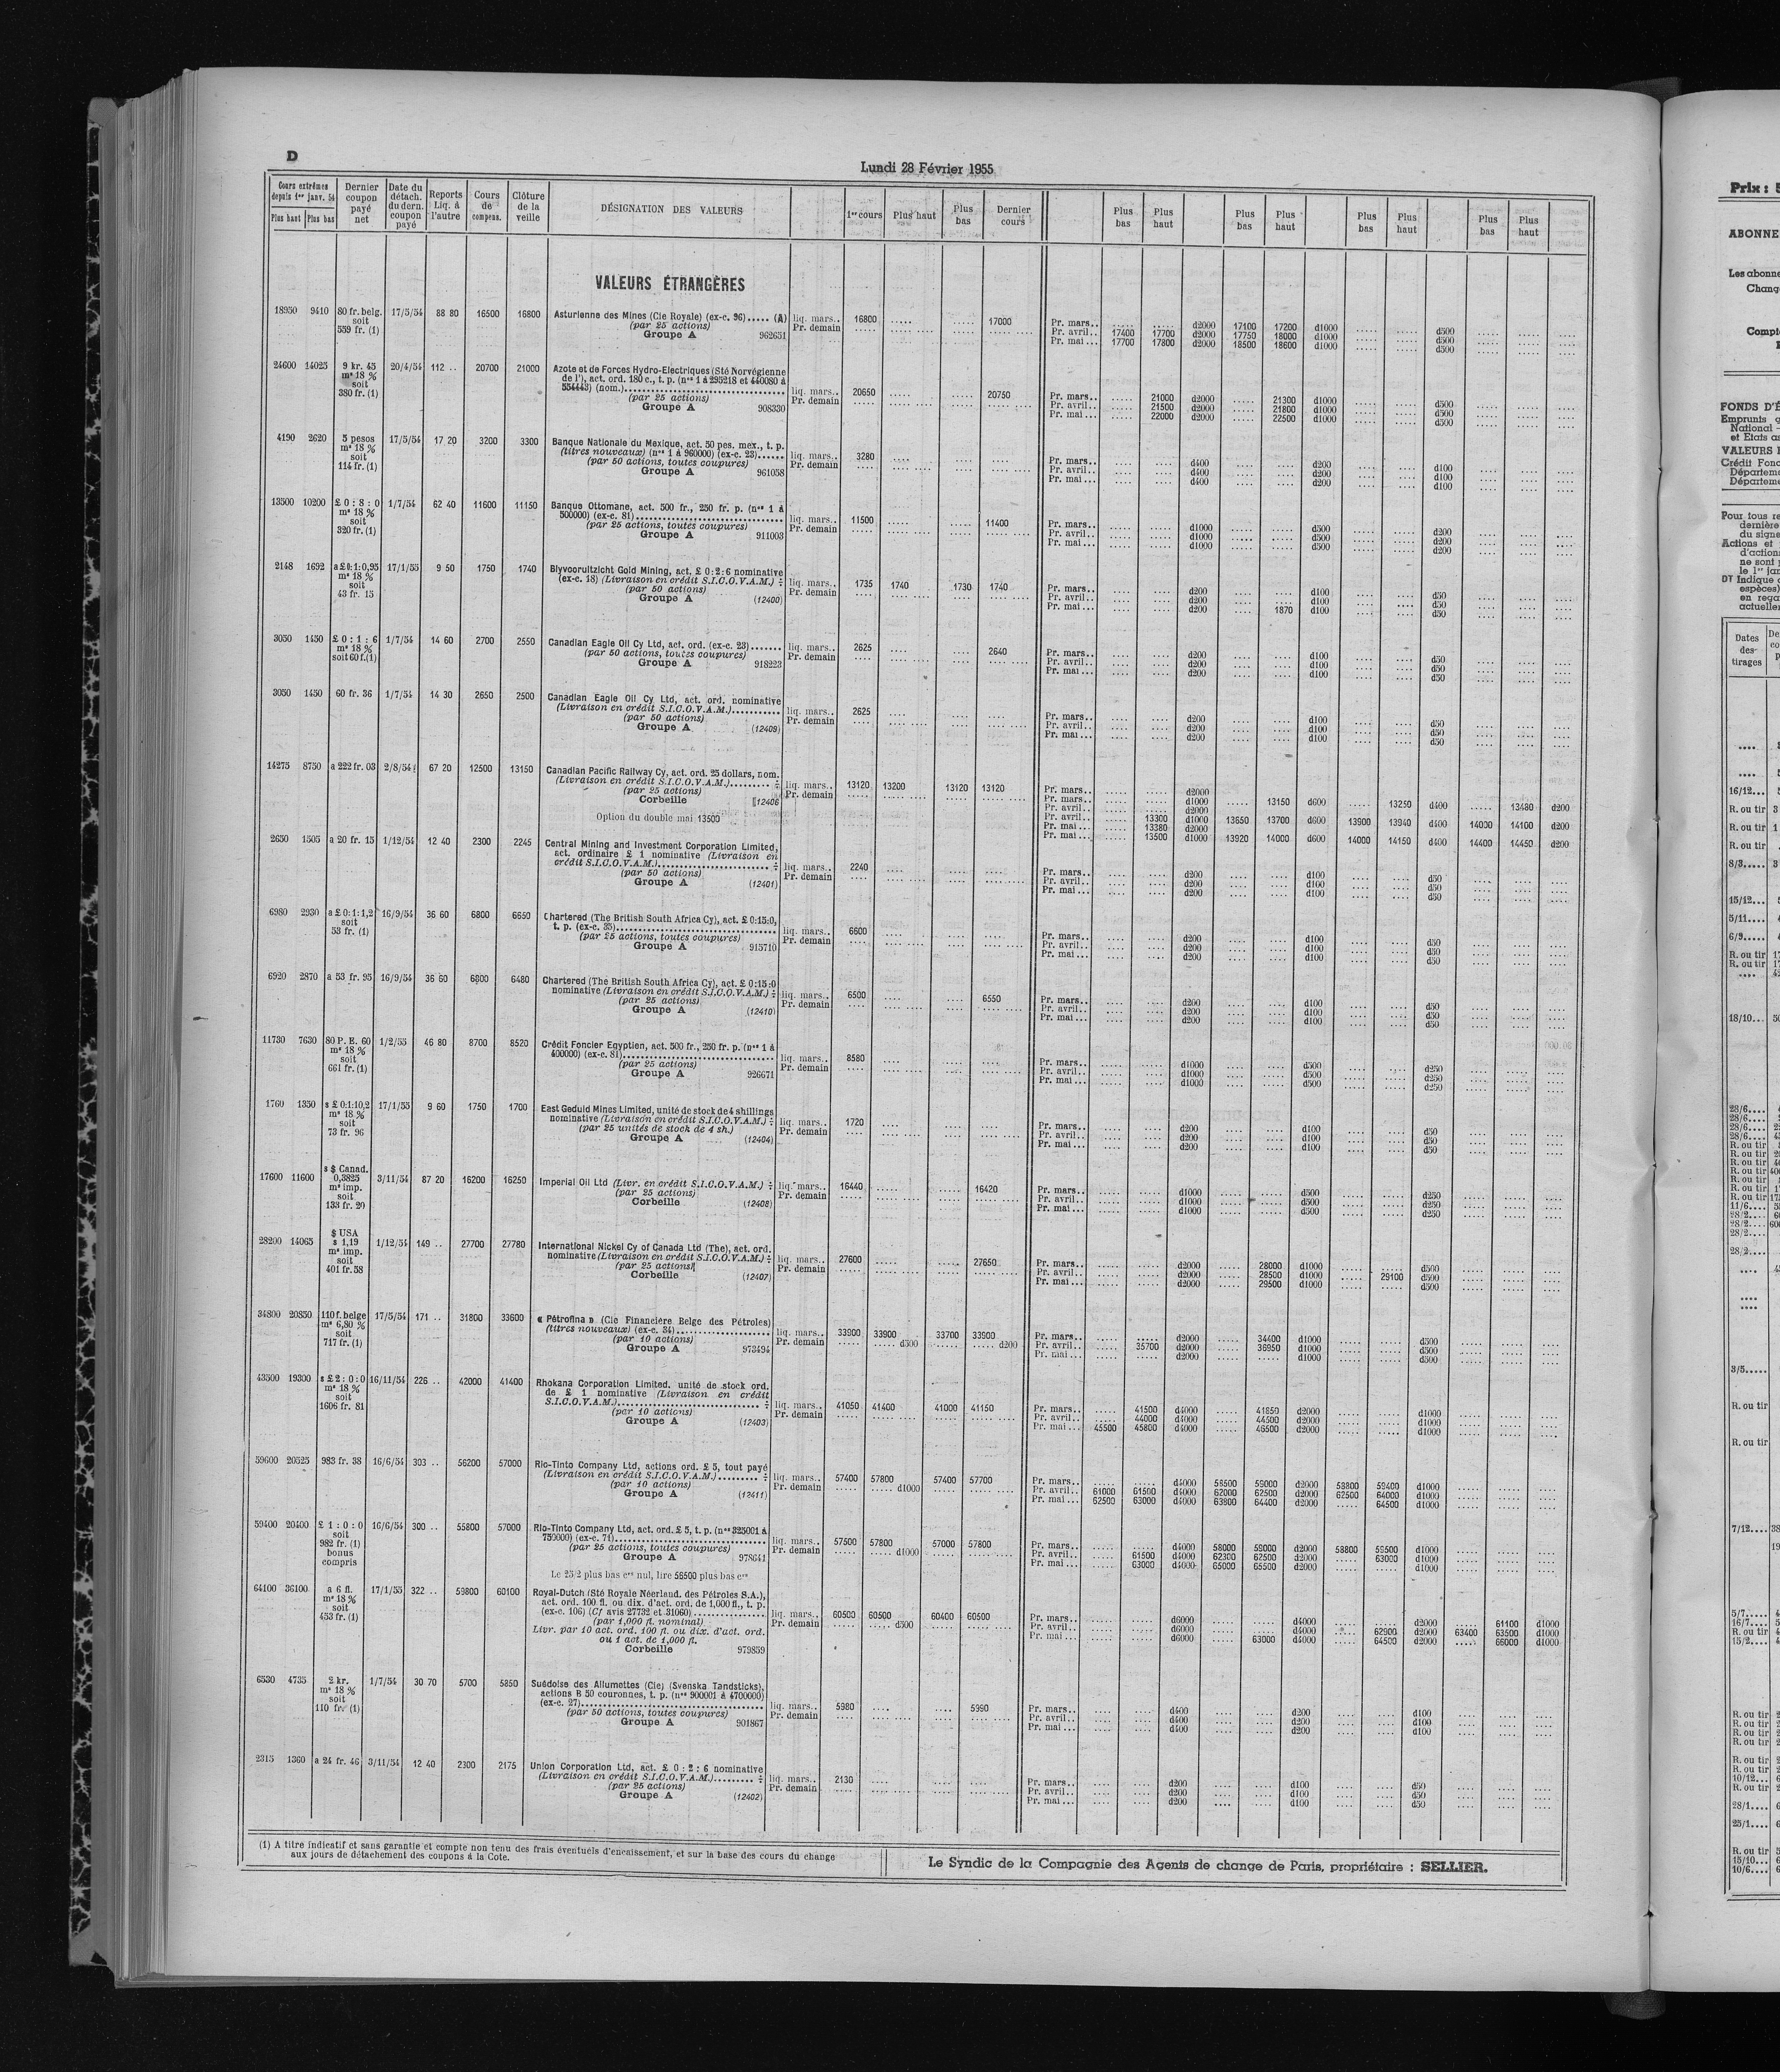 D
Lundi 28 Février 1955
Cours extrêmes depuis 1er janv. 54 Plus haut Plus bas | Dernier coupon payé net | Date du détach. du dern. coupon payé | Reports Liq. à l'autre | Cours de compens. | Clôture de la veille | DÉSIGNATION DES VALEURS | 1er cours | Plus haut | Plus bas | Dernier cours | Plus bas | Plus haut | Plus bas | Plus haut | Plus bas | Plus haut | Plus bas | Plus haut
VALEURS ÉTRANGÈRES
18950 9410 80 fr. belg. soit 559 fr. (1) 17/5/54 88 80 16500 16800 Asturienne des Mines (Cie Royale) (ex-c. 96)..... (A)
(par 25 actions)
Groupe A 962651
liq. mars.. 16800 ..... ..... 17000
Pr. demain
Pr. mars.. ..... ..... d2000 17100 17200 d1000 ..... ..... d500
Pr. avril.. 17400 17700 d2000 17750 18000 d1000 ..... ..... d500
Pr. mai... 17700 17800 d2000 18500 18600 d1000 ..... ..... d500
24600 14025 9 kr. 45 ms 18 % soit 380 fr. (1) 20/4/54 112 .. 20700 21000 Azote et de Forces Hydro-Electriques (Sté Norvégienne
de l'), act. ord. 180 c., t. p. (nos 1 à 295218 et 440080 à
554443) (nom.)
(par 25 actions)
Groupe A 908330
liq. mars.. 20650 ..... ..... 20750
Pr. demain
Pr. mars.. ..... 21000 d2000 ..... 21300 d1000 ..... ..... d500
Pr. avril.. ..... 21500 d2000 ..... 21800 d1000 ..... ..... d500
Pr. mai... ..... 22000 d2000 ..... 22500 d1000 ..... ..... d500
4190 2620 5 pesos ms 18 % soit 114 fr. (1) 17/5/54 17 20 3200 3300 Banque Nationale du Mexique, act. 50 pes. mex., t. p.
(titres nouveaux) (nos 1 à 960000) (ex-c. 23)......
(par 50 actions, toutes coupures)
Groupe A 961058
liq. mars.. 3280
Pr. demain
Pr. mars.. d400 d200 d100
Pr. avril.. d400 d200 d100
Pr. mai... d400 d200 d100
13500 10200 £ 0 : 8 : 0 ms 18 % soit 320 fr. (1) 1/7/54 62 40 11600 11150 Banque Ottomane, act. 500 fr., 250 fr. p. (nos 1 à
500000) (ex-c. 81)
(par 25 actions, toutes coupures)
Groupe A 911003
liq. mars.. 11500 ..... ..... 11400
Pr. demain
Pr. mars.. d1000 d500 d200
Pr. avril.. d1000 d500 d200
Pr. mai... d1000 d500 d200
2148 1692 a £ 0:1:0,95 ms 18 % soit 43 fr. 15 17/1/55 9 50 1750 1740 Blyvooruitzicht Gold Mining, act. £ 0:2:6 nominative
(ex-c. 18) (Livraison en crédit S.I.C.O.V.A.M.) ÷
(par 50 actions)
Groupe A (12400)
liq. mars.. 1735 1740 1730 1740
Pr. demain
Pr. mars.. d200 d100 d50
Pr. avril.. d200 d100 d50
Pr. mai... d200 .... 1870 d100 d50
3050 1450 £ 0 : 1 : 6 ms 18 % soit 60 f.(1) 1/7/54 14 60 2700 2550 Canadian Eagle Oil Cy Ltd, act. ord. (ex-c. 23).......
(par 50 actions, toutes coupures)
Groupe A 918223
liq. mars.. 2625 .... .... 2640
Pr. demain
Pr. mars.. d200 d100 d50
Pr. avril.. d200 d100 d50
Pr. mai... d200 d100 d50
3050 1450 60 fr. 36 1/7/54 14 30 2650 2500 Canadian Eagle Oil Cy Ltd, act. ord. nominative
(Livraison en crédit S.I.C.O.V.A.M.)..........
(par 50 actions)
Groupe A (12409)
liq. mars.. 2625
Pr. demain
Pr. mars.. d200 d100 d50
Pr. avril.. d200 d100 d50
Pr. mai... d200 d100 d50
14275 8750 a 222 fr. 03 2/8/54 67 20 12500 13150 Canadian Pacific Railway Cy, act. ord. 25 dollars, nom.
(Livraison en crédit S.I.C.O.V.A.M.)......... ÷
(par 25 actions)
Corbeille (12406
Option du double mai 13500
liq. mars.. 13120 13200 13120 13120
Pr. demain
Pr. mars.. ..... ..... d2000
Pr. mars.. ..... ..... d1000 ..... 13150 d600 ..... 13250 d400 ..... 13480 d200
Pr. avril.. ..... ..... d2000
Pr. avril.. ..... 13300 d1000 13650 13700 d600 13900 13940 d400 14000 14100 d200
Pr. mai... ..... 13380 d2000
Pr. mai... ..... 13500 d1000 13920 14000 d600 14000 14150 d400 14400 14450 d200
2650 1505 a 20 fr. 15 1/12/54 12 40 2300 2245 Central Mining and Investment Corporation Limited,
act. ordinaire £ 1 nominative (Livraison en
crédit S.I.C.O.V.A.M.) ÷
(par 50 actions)
Groupe A (12401)
liq. mars.. 2240
Pr. demain
Pr. mars.. d200 d100 d50
Pr. avril.. d200 d100 d50
Pr. mai... d200 d100 d50
6980 2930 a £ 0:1:1,2 soit 53 fr. (1) 16/9/54 36 60 6800 6650 Chartered (The British South Africa Cy), act. £ 0:15:0,
t. p. (ex-c. 35)
(par 25 actions, toutes coupures)
Groupe A 915710
liq. mars.. 6600
Pr. demain
Pr. mars.. d200 d100 d50
Pr. avril.. d200 d100 d50
Pr. mai... d200 d100 d50
6920 2870 a 53 fr. 95 16/9/54 36 60 6800 6480 Chartered (The British South Africa Cy), act. £ 0:15:0
nominative (Livraison en crédit S.I.C.O.V.A.M.) ÷
(par 25 actions)
Groupe A (12410)
liq. mars.. 6500 .... .... 6550
Pr. demain
Pr. mars.. d200 d100 d50
Pr. avril.. d200 d100 d50
Pr. mai... d200 d100 d50
11730 7630 80 P. E. 60 ms 18 % soit 661 fr. (1) 1/2/55 46 80 8700 8520 Crédit Foncier Egyptien, act. 500 fr., 250 fr. p. (nos 1 à
400000) (ex-c. 81)
(par 25 actions)
Groupe A 926671
liq. mars.. 8580
Pr. demain
Pr. mars.. d1000 d500 d250
Pr. avril.. d1000 d500 d250
Pr. mai... d1000 d500 d250
1760 1350 s £ 0:1:10,2 ms 18 % soit 73 fr. 96 17/1/55 9 60 1750 1700 East Geduld Mines Limited, unité de stock de 4 shillings
nominative (Livraison en crédit S.I.C.O.V.A.M.) ÷
(par 25 unités de stock de 4 sh.)
Groupe A (12404)
liq. mars.. 1720
Pr. demain
Pr. mars.. d200 d100 d50
Pr. avril.. d200 d100 d50
Pr. mai... d200 d100 d50
17600 11600 s $ Canad. 0,3825 ms imp. soit 133 fr. 20 3/11/54 87 20 16200 16250 Imperial Oil Ltd (Livr. en crédit S.I.C.O.V.A.M.) ÷
(par 25 actions)
Corbeille (12408)
liq. mars.. 16440 ..... ..... 16420
Pr. demain
Pr. mars.. d1000 d500 d250
Pr. avril.. d1000 d500 d250
Pr. mai... d1000 d500 d250
28200 14065 $ USA s 1,19 ms imp. soit 401 fr. 58 1/12/54 149 .. 27700 27780 International Nickel Cy of Canada Ltd (The), act. ord.
nominative (Livraison en crédit S.I.C.O.V.A.M.) ÷
(par 25 actions)
Corbeille (12407)
liq. mars.. 27600 ..... ..... 27650
Pr. demain
Pr. mars.. ..... ..... d2000 ..... 28000 d1000 ..... ..... d500
Pr. avril.. ..... ..... d2000 ..... 28500 d1000 ..... 29100 d500
Pr. mai... ..... ..... d2000 ..... 29500 d1000 ..... ..... d500
34800 20850 110 f. belge ms 6,80 % soit 717 fr. (1) 17/5/54 171 .. 31800 33600 « Pétrofina » (Cie Financière Belge des Pétroles)
(titres nouveaux) (ex-c. 34)
(par 10 actions)
Groupe A 973494
liq. mars.. 33900 33900 33700 33900
Pr. demain ..... ..... d500 ..... ..... d200
Pr. mars.. ..... ..... d2000 ..... 34400 d1000 ..... ..... d500
Pr. avril.. ..... 35700 d2000 ..... 36950 d1000 ..... ..... d500
Pr. mai... ..... ..... d2000 ..... ..... d1000 ..... ..... d500
43500 19300 s £ 2 : 0 : 0 ms 18 % soit 1606 fr. 81 16/11/54 226 .. 42000 41400 Rhokana Corporation Limited. unité de stock ord.
de £ 1 nominative (Livraison en crédit
S.I.C.O.V.A.M.) ÷
(par 10 actions)
Groupe A (12403)
liq. mars.. 41050 41400 41000 41150
Pr. demain
Pr. mars.. ..... 41500 d4000 ..... 41850 d2000 ..... ..... d1000
Pr. avril.. ..... 44000 d4000 ..... 44500 d2000 ..... ..... d1000
Pr. mai... 45500 45800 d4000 ..... 46500 d2000 ..... ..... d1000
59600 20525 983 fr. 38 16/6/54 303 .. 56200 57000 Rio-Tinto Company Ltd, actions ord. £ 5, tout payé
(Livraison en crédit S.I.C.O.V.A.M.)......... ÷
(par 10 actions)
Groupe A (12411)
liq. mars.. 57400 57800 57400 57700
Pr. demain ..... ..... d1000
Pr. mars.. ..... ..... d4000 58500 59000 d2000 58800 59400 d1000
Pr. avril.. 61000 61500 d4000 62000 62500 d2000 62500 64000 d1000
Pr. mai... 62500 63000 d4000 63800 64400 d2000 ..... 64500 d1000
59400 20400 £ 1 : 0 : 0 soit 982 fr. (1) bonus compris 16/6/54 300 .. 55800 57000 Rio-Tinto Company Ltd, act. ord. £ 5, t. p. (nos 325001 à
750000) (ex-c. 71)
(par 25 actions, toutes coupures)
Groupe A 978641
Le 25/2 plus bas crs nul, lire 56500 plus bas crs
liq. mars.. 57500 57800 57000 57800
Pr. demain ..... ..... d1000
Pr. mars.. ..... ..... d4000 58000 59000 d2000 58800 59500 d1000
Pr. avril.. ..... 61500 d4000 62300 62500 d2000 ..... 63000 d1000
Pr. mai... ..... 63000 d4000 65000 65500 d2000 ..... ..... d1000
64100 36100 a 6 fl. ms 18 % soit 453 fr. (1) 17/1/55 322 .. 59800 60100 Royal-Dutch (Sté Royale Néerland. des Pétroles S.A.),
act. ord. 100 fl. ou dix. d'act. ord. de 1,000 fl., t. p.
(ex-c. 106) (Cf avis 27732 et 31060)
(par 1,000 fl. nominal)
Livr. par 10 act. ord. 100 fl. ou dix. d'act. ord.
ou 1 act. de 1,000 fl.
Corbeille 979859
liq. mars.. 60500 60500 60400 60500
Pr. demain ..... ..... d500
Pr. mars.. ..... ..... d6000 ..... ..... d4000 ..... ..... d2000 ..... 61100 d1000
Pr. avril.. ..... ..... d6000 ..... ..... d4000 ..... 62900 d2000 63400 63500 d1000
Pr. mai... ..... ..... d6000 ..... 63000 d4000 ..... 64500 d2000 ..... 66000 d1000
6530 4735 2 kr. ms 18 % soit 110 fr. (1) 1/7/54 30 70 5700 5850 Suédoise des Allumettes (Cie) (Svenska Tandsticks),
actions B 50 couronnes, t. p. (nos 900001 à 4700000)
(ex-c. 27)
(par 50 actions, toutes coupures)
Groupe A 901867
liq. mars.. 5980 .... .... 5960
Pr. demain
Pr. mars.. d400 d200 d100
Pr. avril.. d400 d200 d100
Pr. mai... d400 d200 d100
2315 1360 a 24 fr. 46 3/11/54 12 40 2300 2175 Union Corporation Ltd, act. £ 0 : 2 : 6 nominative
(Livraison en crédit S.I.C.O.V.A.M.)......... ÷
(par 25 actions)
Groupe A (12402)
liq. mars.. 2130
Pr. demain
Pr. mars.. d200 d100 d50
Pr. avril.. d200 d100 d50
Pr. mai... d200 d100 d50
(1) A titre indicatif et sans garantie et compte non tenu des frais éventuels d'encaissement, et sur la base des cours du change
aux jours de détachement des coupons à la Cote.
Le Syndic de la Compagnie des Agents de change de Paris, propriétaire : SELLIER.
Prix :
ABONNE
Les abonne
Chang
Compt
FONDS D'É
Emprunts
National
et Etats
VALEURS
Crédit Fonc
Départeme
Départeme
Pour tous re
dernière
du signe
Actions et
d'actions
ne sont
le 1er jan
DT Indique
espèces)
en rega
actuelle
Dates des tirages
16/12...
R. ou tir
R. ou tir
R. ou tir
8/3.....
15/12...
5/11....
6/9.....
R. ou tir
R. ou tir
18/10...
28/6....
28/6....
28/6....
28/6....
R. ou tir
R. ou tir
R. ou tir
R. ou tir
R. ou tir
R. ou tir
11/6....
28/2....
28/2....
28/2....
28/2....
3/5.....
R. ou tir
R. ou tir
7/12....
5/7.....
16/7....
R. ou tir
15/2....
R. ou tir
R. ou tir
R. ou tir
R. ou tir
R. ou tir
R. ou tir
10/12...
R. ou tir
28/1....
25/1....
R. ou tir
15/10...
10/6....